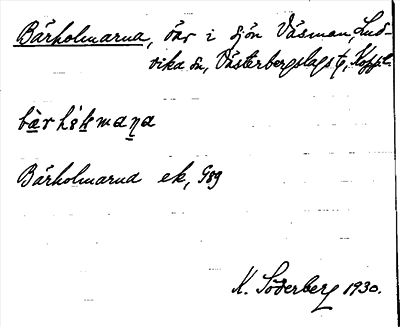 Bärholmarna, öar i sjön Väsman, Lud-
vika sn, Västerbergslags t, Koppl.
Bärholmarna ek, 989
K. Söderberg 1930.